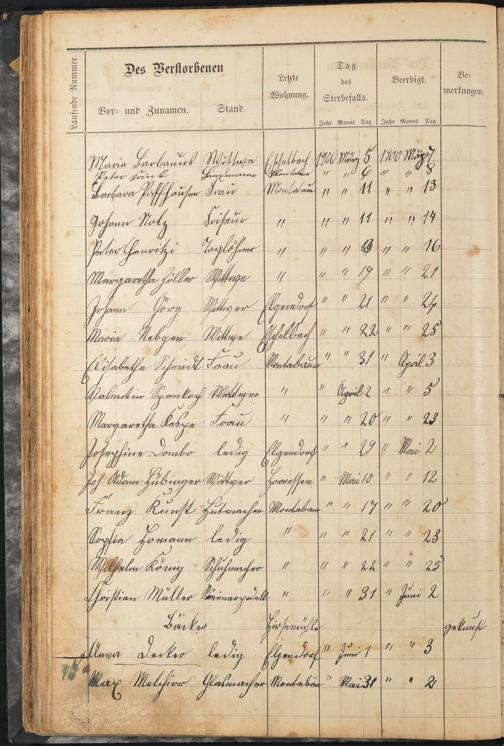 Laufende Nummer.
Des Verstorbenen
Vor- und Zunamen. Stand.
Letzte Wohnung.
Tag des Sterbefalls.
Jahr Monat Tag
Beerdigt.
Jahr Monat Tag
Bemerkungen.
Maria Barbanus Wittwe Eschelbach 1900 März 5 1900 März 7
Peter " " 6 " " 8
Barbara Pfaffhausen Frau Montabaur " " 11 " " 13
Johann Notz Friseur " " " 11 " " 14
Peter Henritzi Taglöhner " " " 13 " " 16
Margaretha Höller Wittwe " " " 19 " " 21
Johann Görg Wittwer Elgendorf " " 21 " " 24
Maria Nebgen Wittwe Eschelbach " " 22 " " 25
Elisabetha Schmidt Frau Montabaur " " 31 " April 3
Valentin Wittwer " " April 2 " " 5
Margaretha Frau " " " 20 " " 23
Josephine Dombo ledig Elgendorf " " 29 " Mai 2
Joh. Adam Hübinger Wittwer Horressen " Mai 10 " " 12
Franz Kunst Hutmacher Montabaur " " 17 " " 20
Sophia Homann ledig " " " 21 " " 23
Wilhelm König Schuhmacher " " " 22 " " 25
Christian Müller " " " 31 " Juni 2
Bäcker Hirsemühle
Anna Decker ledig Elgendorf " Juni 1 " " 3
Max Melchior Glasmacher Montabaur " Mai 31 " " 2